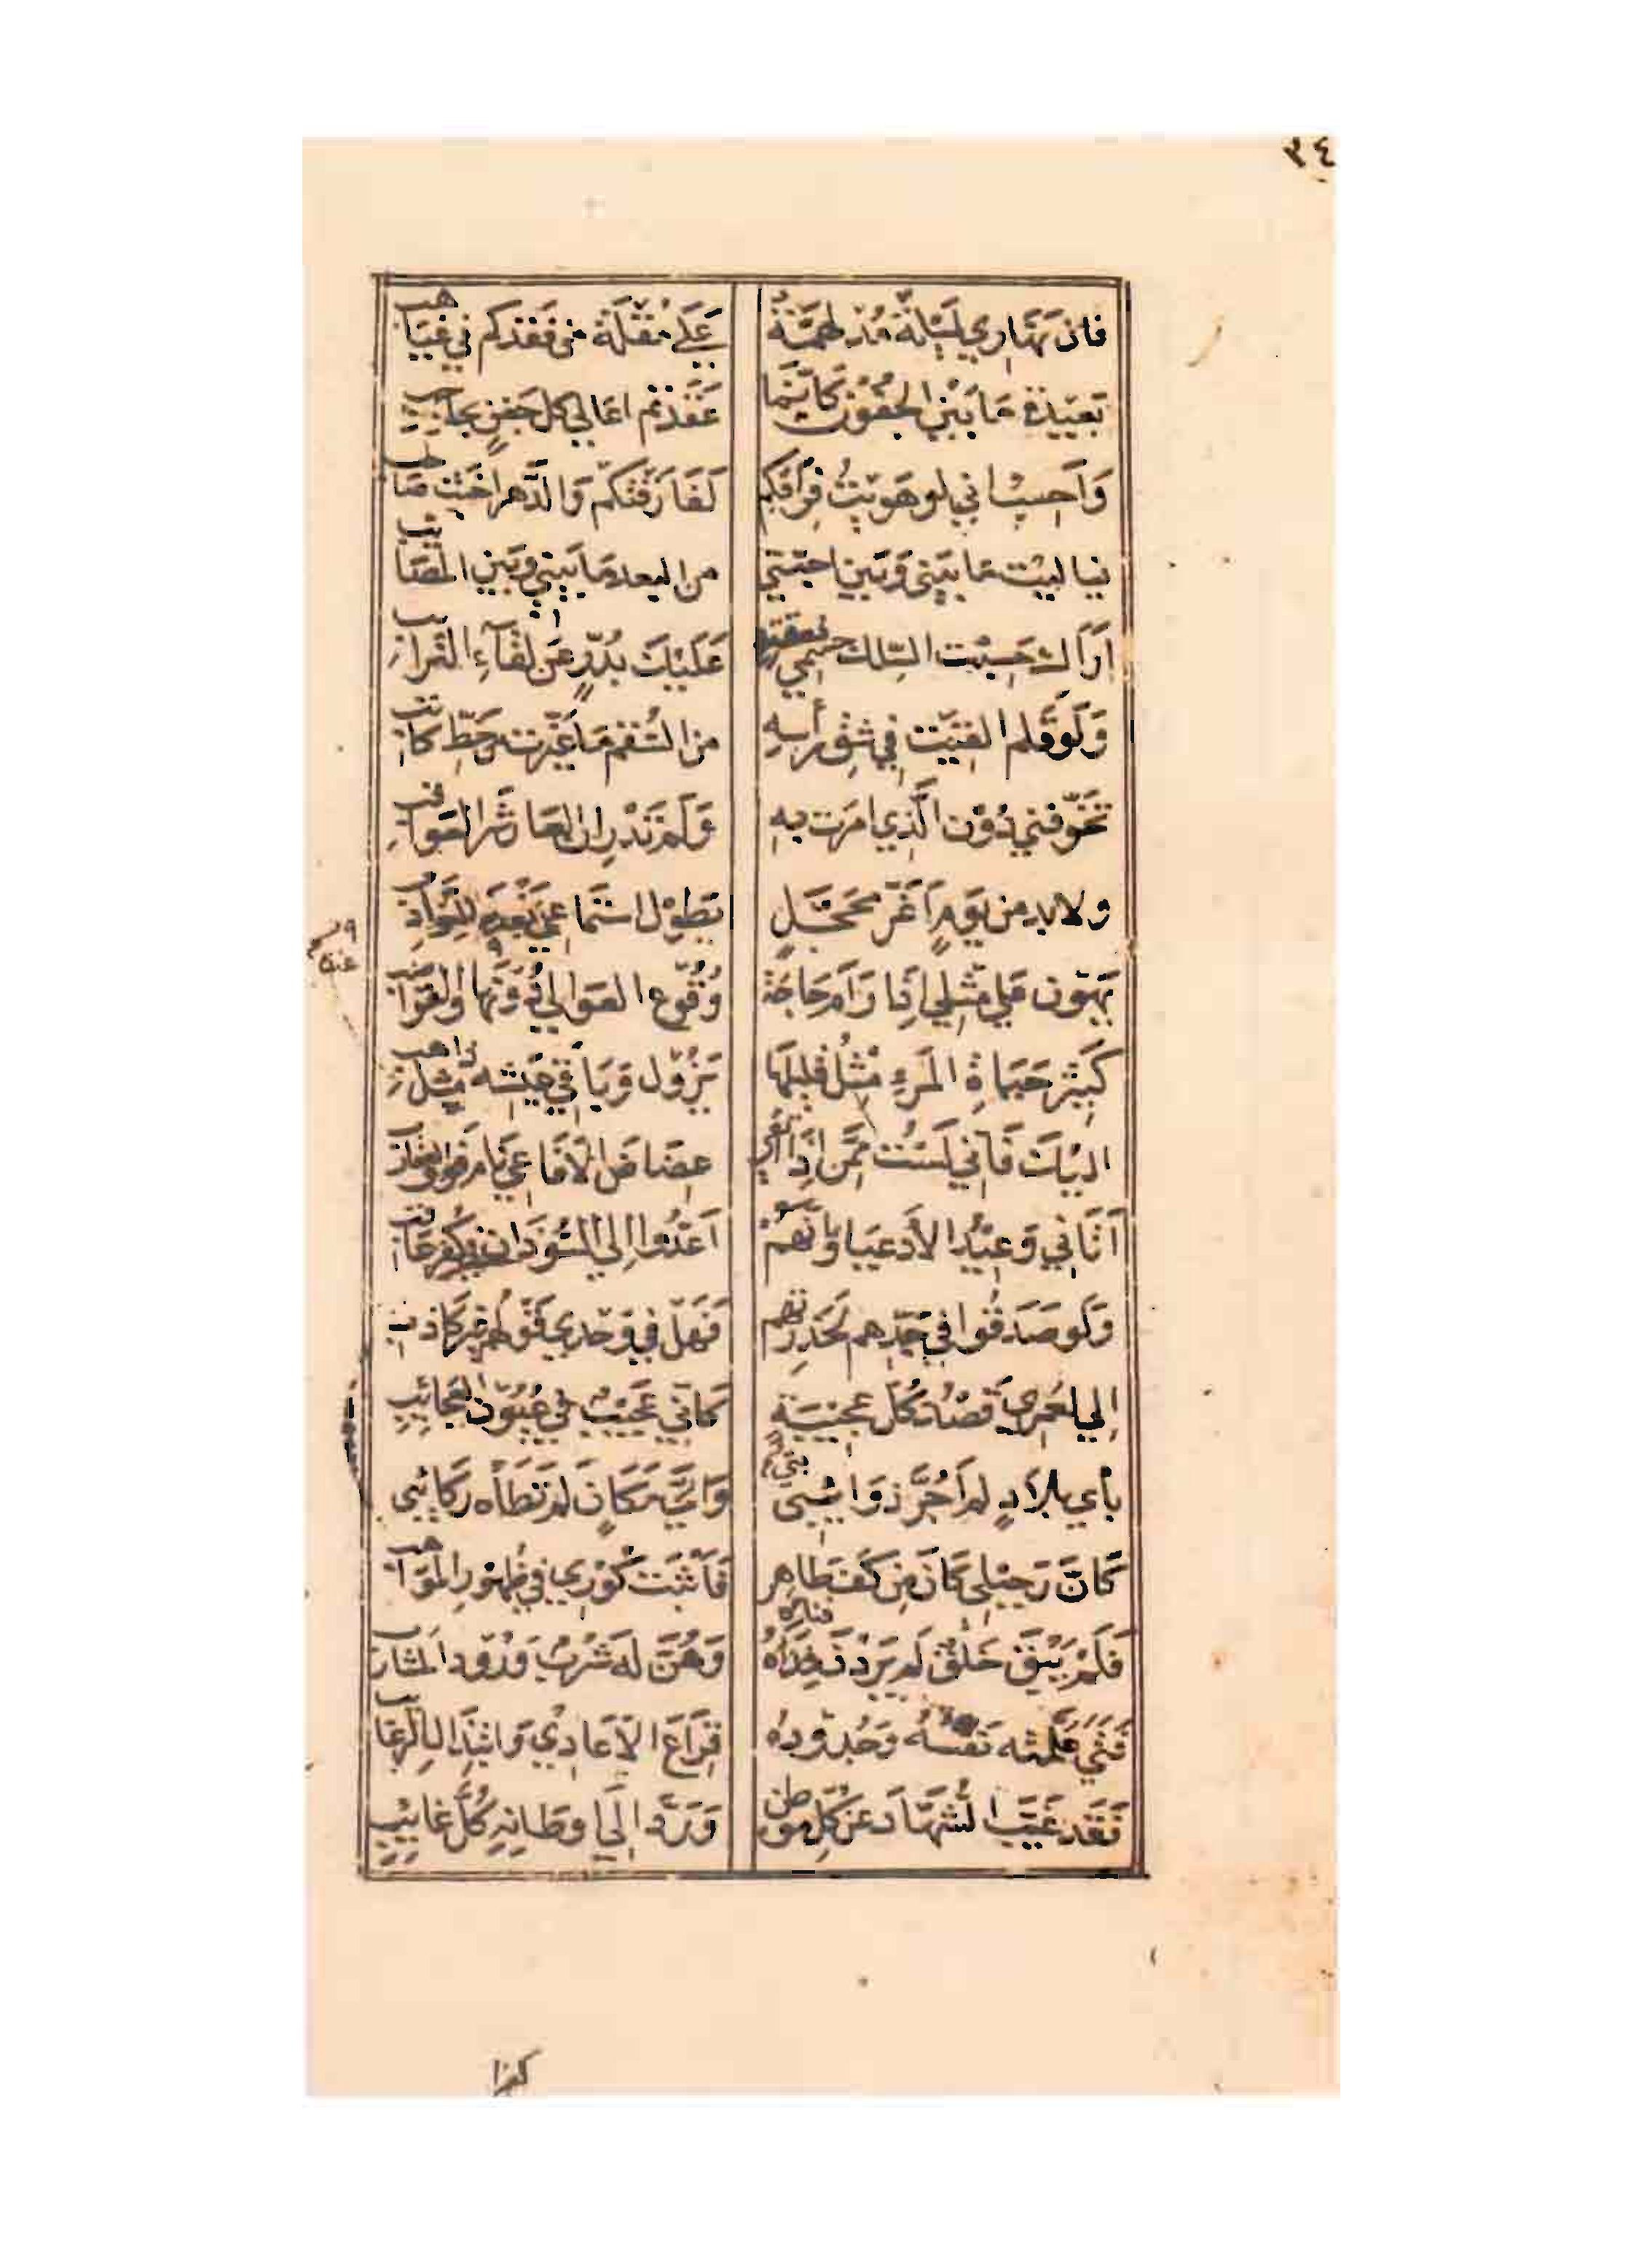 ٣٤
فان نهاري لَيْلَةٌ مُدْلهمَّةٌ عَلَى مُقْلَةٍ من فَقْدكم في غَيَاهب
بَعِيْدَةِ مَا بَيْنَ الجُفُوْن كَانَّمَا عَقَدْتُم اعَالي كل جَفنٍ بحاجِب
وَاَحسِبُ اني لو هَوِيْتُ فِرَاقَكم لَفَارَقْتكم وَالدَّهر اخبَثُ صَاحب
فيا ليت مَا بَيْني وَبَين احبّتي من البعد مَا بَيني وَبَين المصَائب
اَرَاك حَسِبْت السِّلك جسمي فعقته عَلَيْك بدُرٍّ عَن لقآءِ التَّرائب
وَلَو قَلم القيت في شق رأسِهِ من السُّقم مَا غَيَّرت من خَطّ كاتب
تخوّفني دُوْن الَّذي امَرَت بِهِ وَلَم تَدْرِ ان العَار شَر العَوَاقب
ولا بد من يَومٍ اَغَرّ محجّلٍ يَطول استمَاعي بَعْدَه للنّوَادِب
يَهُون عَلى مثلي اِذا رَامَ حَاجَة وُقوع العَوالي دُونها والقوَاضب
كَثِيْر حَيَاةِ المَرءِ مثْل قليلِهَا يَزُوْل وَبَاقي عَيشه مِثل ذاهب
اليْك فَاِنّي لَسْت مِمَّن اِذَا اتّقى عِضَاض الاَفَاعي نَام فوق العقارب
اَتَاني وَعِيْد الاَدعيَا وَاَنَّهُمْ اَعَدُّوا اِلي السُّوْدَان في كفرعَاقب
وَلَو صَدَقُوا في جَدّهم لَحَذِرْتهم فَهَل في وَحدي قَوْلهُم غير كاذب
اِلي لعَمري قَصْد كُلّ عجيبَةٍ كَاَنّي عَجيبٌ في عُيُوْن العَجائِبِ
بأي بلادٍ لم اَجُرَّ ذوَائبي وَاَيّ مَكَانٍ لم تَطَأه رَكَائبي
كَاَن رَحيْلِي كَانَ مِن كَفّ طاهِر فَاَثْبَت كُوْرِي في ظهُور المَوَاهب
فَلم يَبْقَ خَلْقٌ لم يَرِدْن فِنَاءَهُ وَهُنَّ لَه شرْبٌ وُرُود المَشارب
فَتىً عَلَّمته نَفسُه وَجُدوده قِرَاعَ الاَعَادِي وَابتذَال الرغَائب
فَقَد غَيَّبَ الشُّهَّاد عَن كُلّ مَوطِن وَرَدَّ اِلَى اوطَانِهِ كُلَّ غائِبٍ
كذا